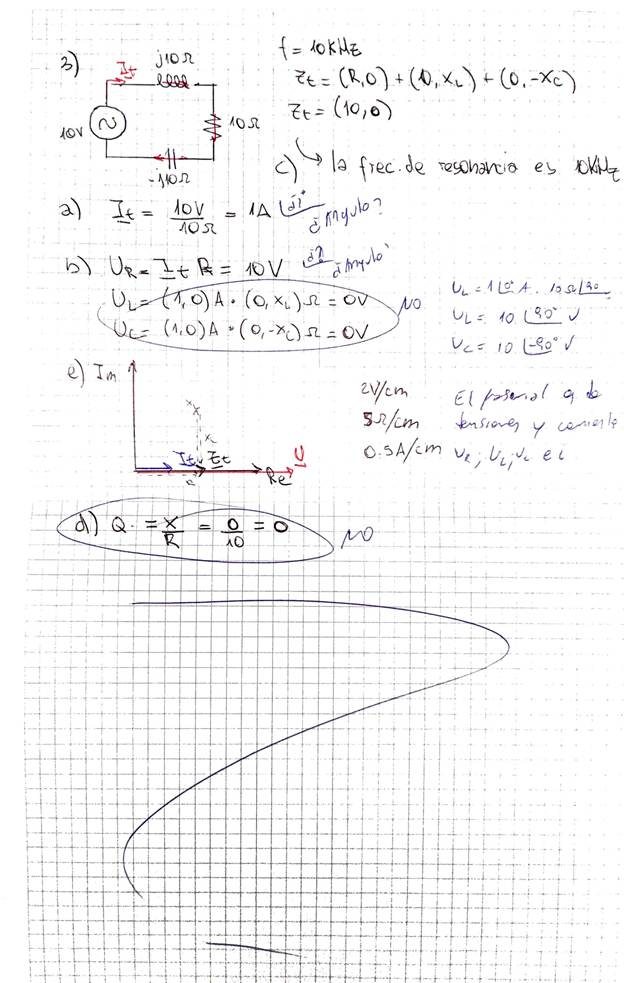 3)
j10Ω
It
10V
10Ω
-j10Ω
f = 10KHz
Zt = (R,0) + (0,XL) + (0,-XC)
Zt = (10,0)
c) la frec. de resonancia es 10KHz
a) It = 10V/10Ω = 1A ¿Angulo?
b) UR = It R = 10V ¿Angulo?
UL = (1,0)A · (0,XL)Ω = 0V
UC = (1,0)A · (0,-XC)Ω = 0V
NO
UL = 1∠0° A · 10Ω∠90
UL = 10 ∠90° V
UC = 10 ∠-90° V
e) Im
XL
It
Zt
R
Re
U
2V/cm
5Ω/cm
0.5A/cm
El fasorial es de
tensiones y corriente
UR, UL, UC e i
d) Q = X/R = 0/10 = 0
NO